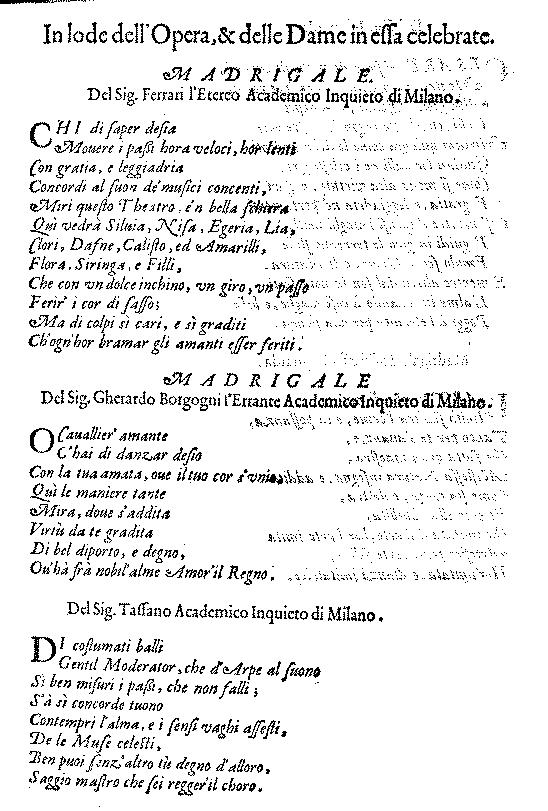 In lode dell'Opera, & delle Dame in essa celebrate.
MADRIGALE.
Del Sig. Ferrari l'Etereo Academico Inquieto di Milano.
CHI di saper desia
Mouere i passi hora veloci, hor lenti
Con gratia, e leggiadria
Concordi al suon de' musici concenti,
Miri questo Theatro, e'n bella schiera
Quì vedrà Siluia, Nisa, Egeria, Lia,
Clori, Dafne, Calisto, ed Amarilli,
Flora, Siringa, e Filli,
Che con vn dolce inchino, vn giro, vn passo
Ferir' i cor di sasso;
Ma di colpi sì cari, e sì graditi
Ch'ogn'hor bramar gli amanti esser feriti.
MADRIGALE
Del Sig. Gherardo Borgogni l'Errante Academico Inquieto di Milano.
O Cauallier' amante
C'hai di danzar desio
Con la tua amata, oue il tuo cor s'vnio,
Quì le maniere tante
Mira, doue s'addita
Virtù da te gradita
Di bel diporto, e degno,
Ou'hà frà nobil'alme Amor'il Regno.
Del Sig. Tassano Academico Inquieto di Milano.
DI costumati balli
Gentil Moderator, che d'Arpe al suono
Sì ben misuri i passi, che non falli;
S'à sì concorde tuono
Contempri l'alma, e i sensi vaghi assesti,
De le Muse celesti,
Ben puoi senz'altro tù degno d'alloro,
Saggio mastro che sei regger'il choro.